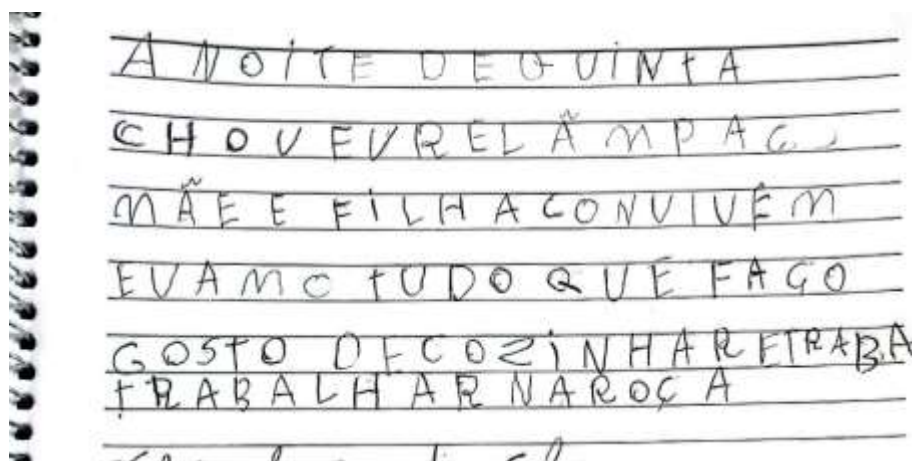 A NOITE DE QUINTA
CHOVEU RELÃMPAG
MÃE E FILHA CONVIVÉM
EU AMO TUDO QUE FAÇO
GOSTO DE COZINHAR E TRABA
TRABALHAR NA ROÇA